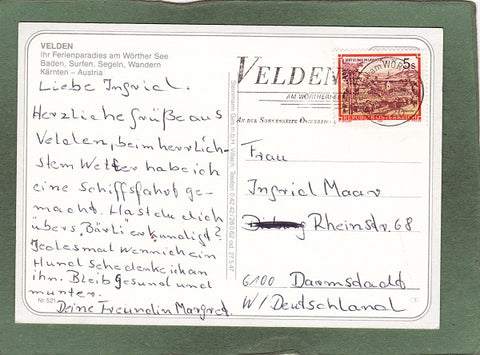 VELDEN
Ihr Ferienparadies am Wörther See
Baden, Surfen, Segeln, Wandern
Kärnten – Austria
Liebe Ingrid.
Herzliche Grüße aus
Velden, beim herrlich-
stem Wetter habe ich
eine Schiffsfahrt ge-
macht. Hast du dich
übers. Bärli erkundigt?
Jedesmal wenn ich ein
Hund sehe denke ich an
ihn. Bleib gesund und
munter.
Deine Freundin Margret.
Nr. 521
VELDEN
AM WÖRTHERSEE
AN DER SONNENSEITE ÖSTERREICHS
5s
REPUBLIK ÖSTERREICH
Frau
Ingrid Maar
Rheinstr. 68
6100 Darmstadt
W/Deutschland